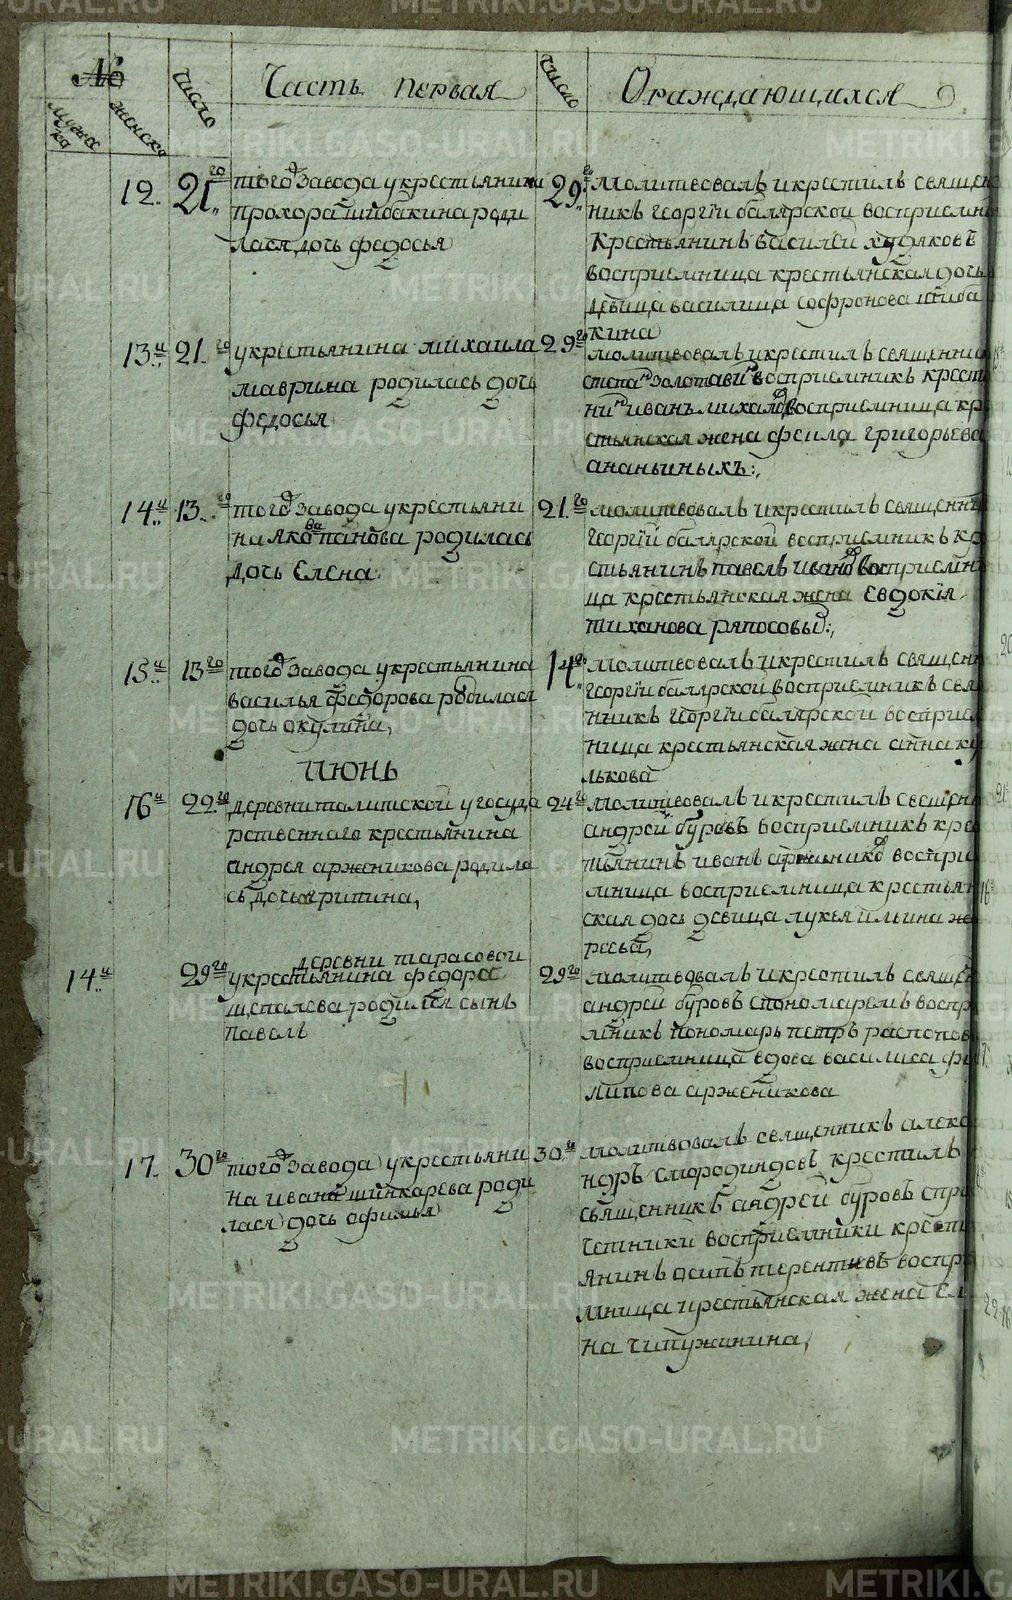 №
мужеска
женска
число
Часть первая
число
О раждающихся
12.
21го
того завода укрестьянина
прохора шибакина роди
лася дочь федосья
29го
молитвовалъ икрестилъ священ
никъ георгiи балярской восприемни
крестьянинъ василеи худяковъ
восприемница крестьянская дочь
девица василиса софронова шиба
кина
13и
21го
укрестьянина михаила
маврина родилась дочь
федосья
29го
молитвовалъ икрестилъ священни
восприемникъ кресть
нинъ иванъ восприемница кре
стьянская жена феила григорьева
ананьиныхъ:,
14и
13го
того завода укрестьяни
на якова панова родилась
дочь елена
21го
молитвовалъ икрестилъ священни
георгiй балярской восприемникъ кре
стьянинъ павелъ восприемни
ца крестьянская жена евдокiя
тиханова ряпосовы:,
15и
13го
того завода укрестьянина
василья федорова родилася
дочь окулина,
14го
молитвовалъ икрестилъ священ
георгiи балярской восприемникъ свя
нникъ георгiи балярской восприем
ница крестьянская жена анна ку
лькова
ИЮНЬ
16и
22го
деревни талитской угосуда
рственнаго крестьянина
андрея арженикова родила
сь дочь агрипина,
24го
молитвовалъ икрестилъ свещени
андрей буровъ восприемникъ кре
тьянинъ иванъ аржеников воспри
мница восприемница крестьян
ская дочь девица лукья ильина же
ребья,
14и
29го
деревни тарасовои
укрестьянина федора
щепалева родился сынъ
павелъ
29го
молитвовалъ икрестилъ священ
андрей буровъ спономаремъ воспри
мникъ пономарь петръ распопов
восприемница вдова василиса фи
липова арженикова
17.
30го
того завода укрестьяни
на ивана шинкарева роди
лася дочь афимья
30го
молитвовалъ священникъ алекса
ндръ смородинцовъ крестилъ
священникъ андрей буровъ спри
четники восприемники кресть
янинъ осипъ терентиевъ воспри
мница крестьянская жена еле
на чипужинина,
METRIKI.GASO-URAL.RU